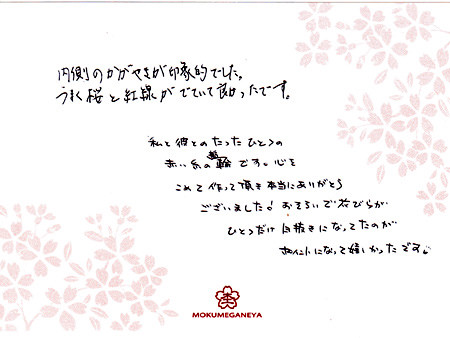 内側のかがやきが印象的でした。
うまく桜と紅線がでていて良かったです。
私と彼とのたったひとつの
赤い糸の輪です。心を
こめて作って頂き本当にありがとう
ございました! おそろいで花びらが
ひとつだけ白抜きになってたのが
ポイントになって嬉しかったです。
MOKUMEGANEYA